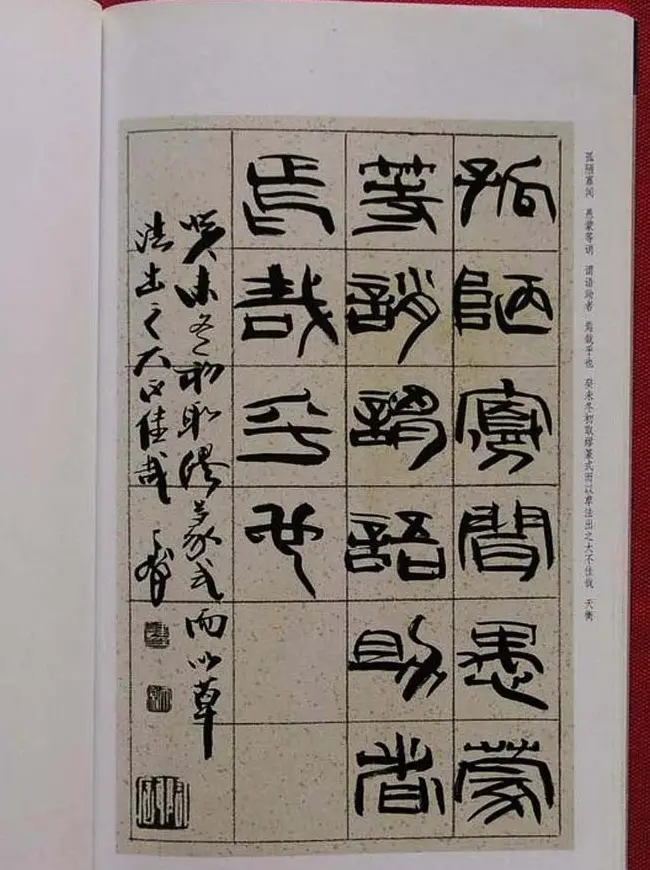 孤陋寡闻 愚蒙等诮 谓语助者 焉哉乎也 癸未冬初取缪篆式而以草法出之大不佳哉 天衡
孤陋寡聞愚蒙
等誚謂語助者
焉哉乎也
癸未冬初取繆篆式而以草
法出之大不佳哉 天衡